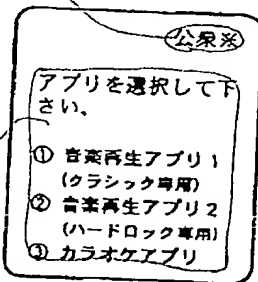 公衆※
アプリを選択して下
さい、
① 音楽再生アプリ1
(クラシック専用)
② 音楽再生アプリ2
(ハードロック専用)
③ カラオケアプリ